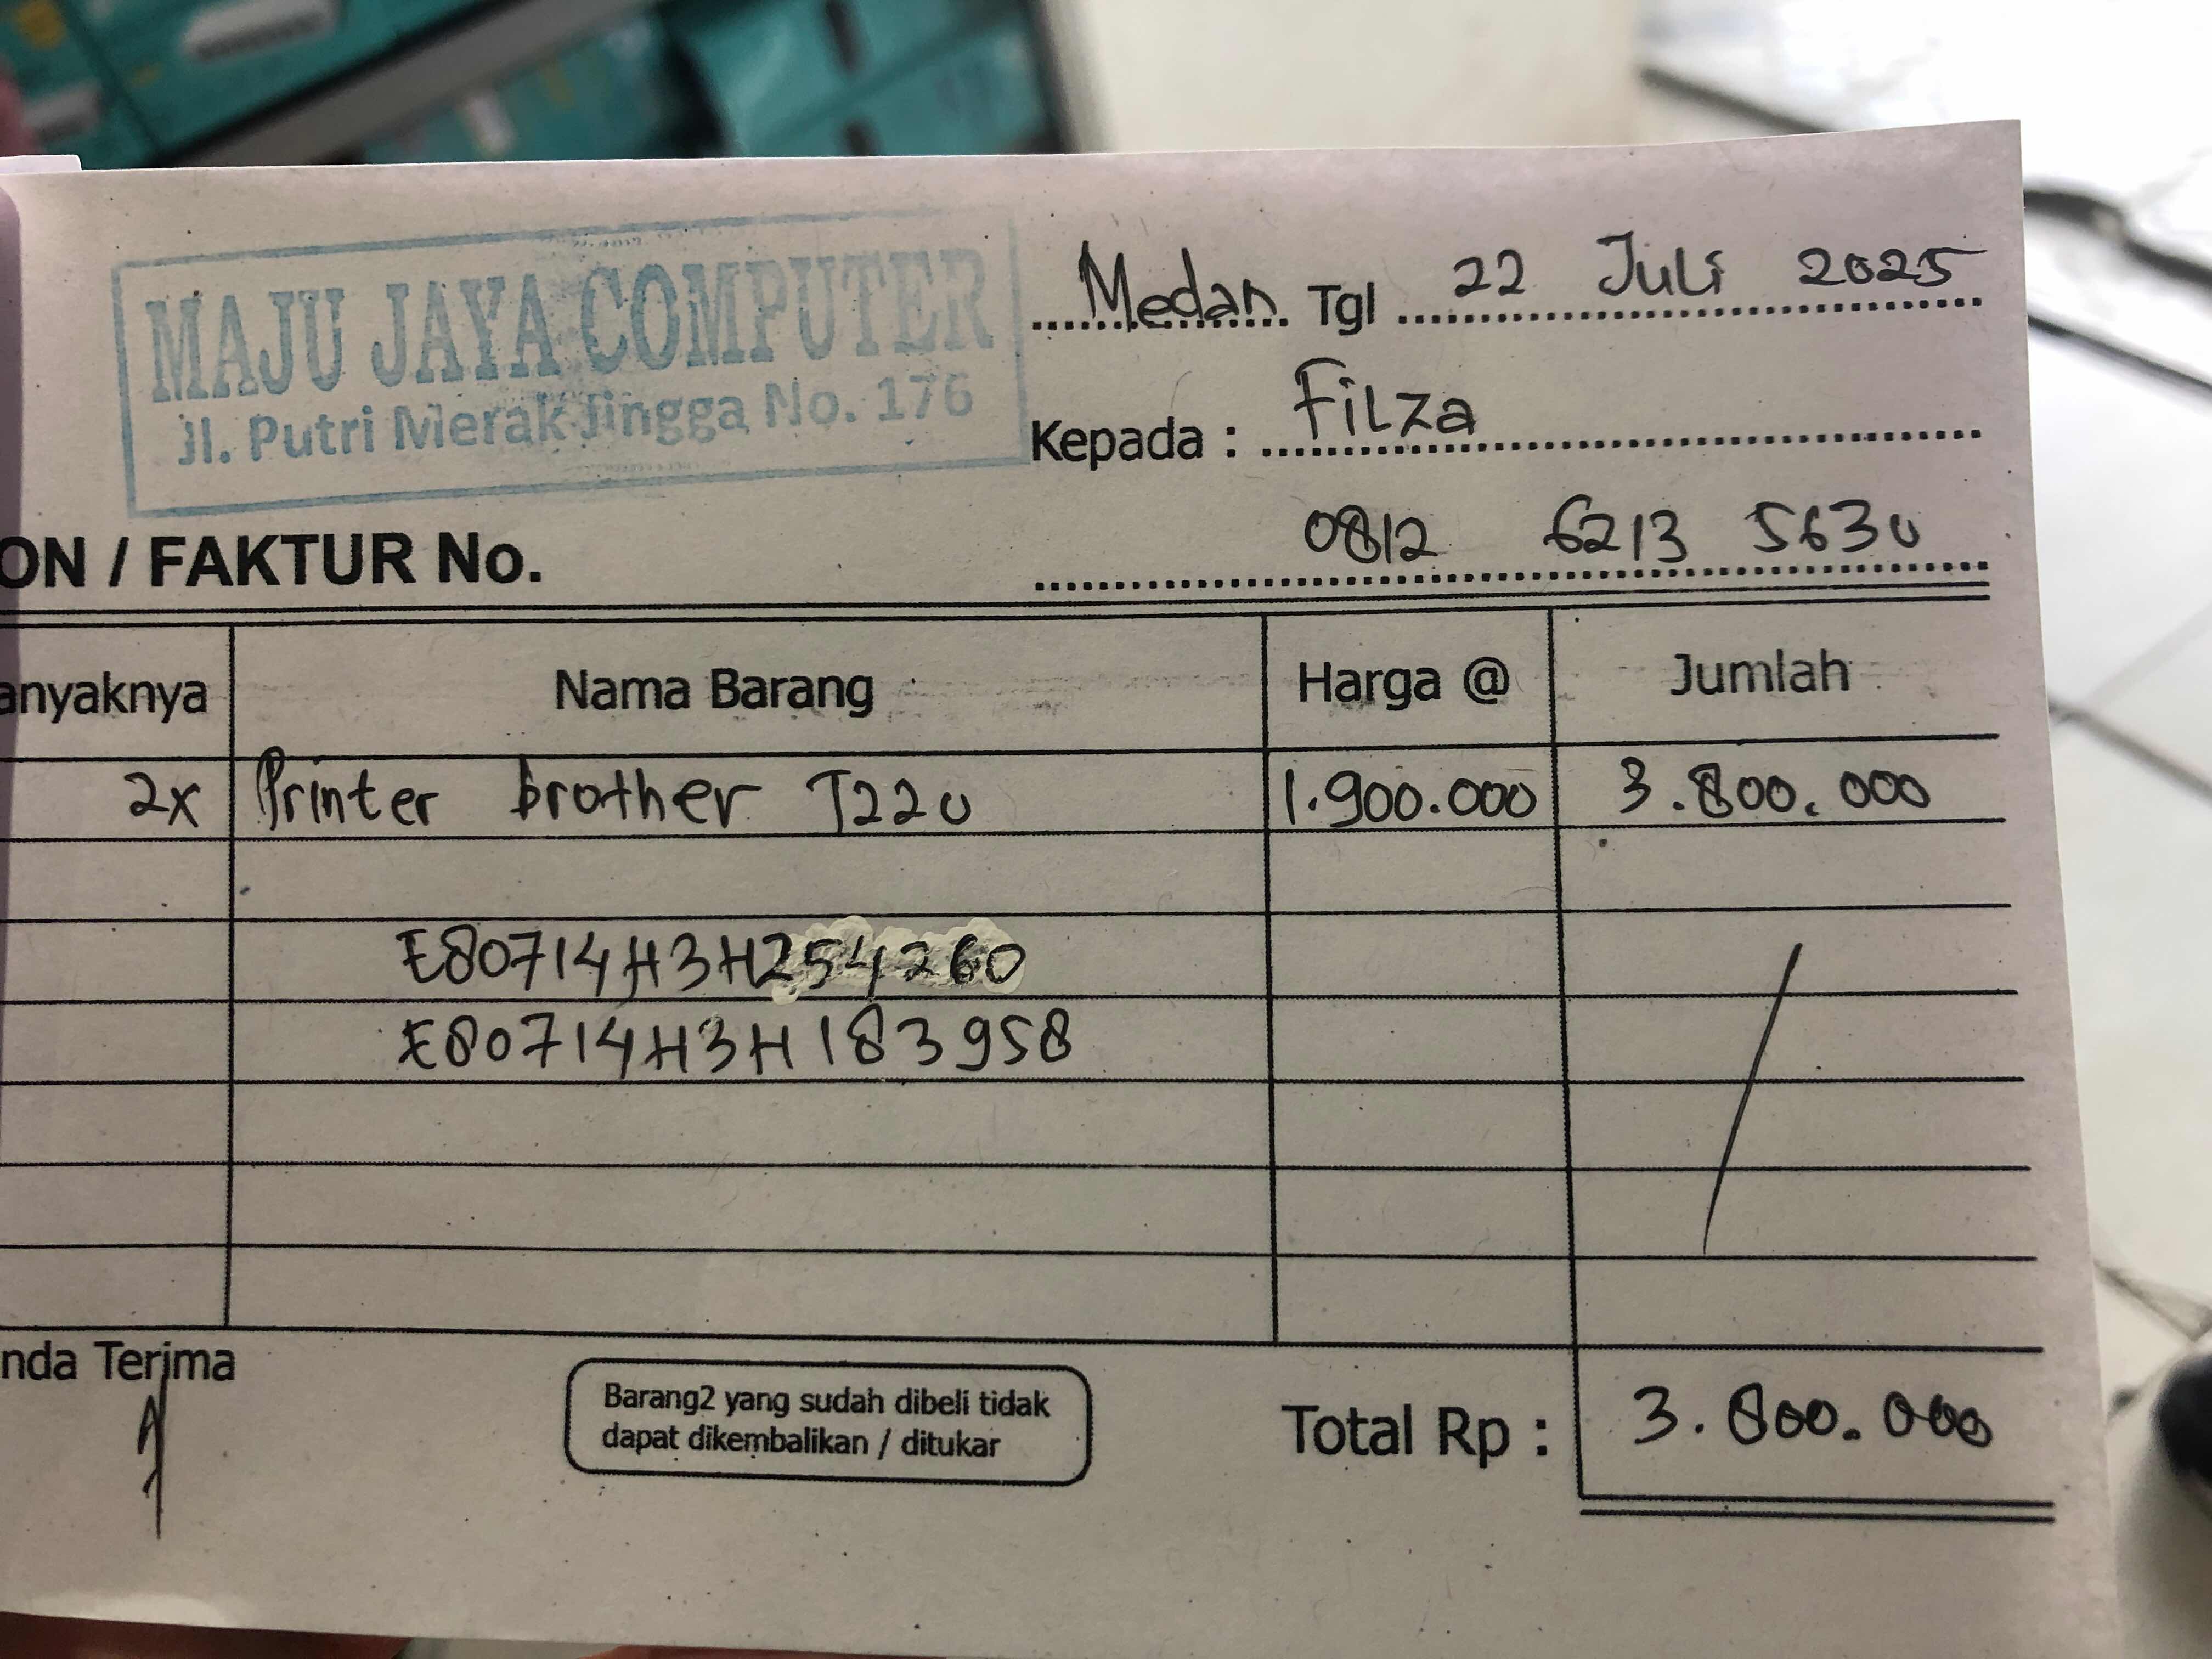 MAJU JAYA COMPUTER
Jl. Putri Merak Jingga No. 176
Medan Tgl 22 Juli 2025
Kepada : Filza
0812 6213 5630
ON / FAKTUR No.
anyaknya Nama Barang Harga @ Jumlah
2x Printer brother T220 1.900.000 3.800.000
E80714H3H254260
E80714H3H183958
nda Terima
Barang2 yang sudah dibeli tidak
dapat dikembalikan / ditukar
Total Rp : 3.800.000